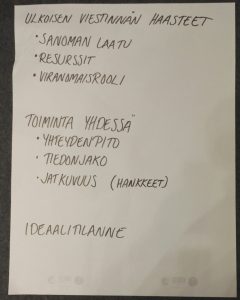 ULKOISEN VIESTINNÄN HAASTEET
• SANOMAN LAATU
• RESURSSIT
• VIRANOMAISROOLI
TOIMINTA YHDESSÄ
• YHTEYDENPITO
• TIEDONJAKO
• JATKUVUUS (HANKKEET)
IDEAALITILANNE